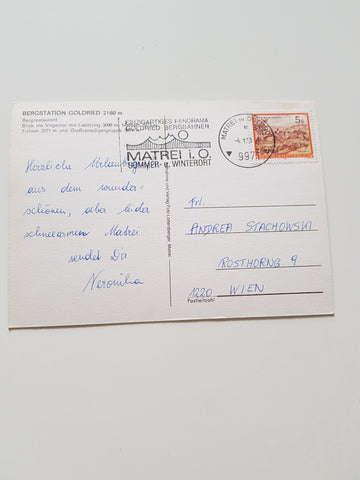 BERGSTATION GOLDRIED 2160 m
Bergrestaurant
Blick ins Virgental mit Lasörling 3098 m
Eichham 3371 m und Großvenedigergruppe
EINZIGARTIGES PANORAMA
GOLDRIED BERGBAHNEN
MATREI i. O.
SOMMER- u. WINTERORT
MATREI IN
5 S
Herrliche Urlaubsgrüße
aus dem wunder-
schönen, aber leider
schneearmen Matrei
sendet Dir
Veronika
Frl.
ANDREA STACHOWSKI
ROSTHORNG. 9
1220 WIEN
Postleitzahl